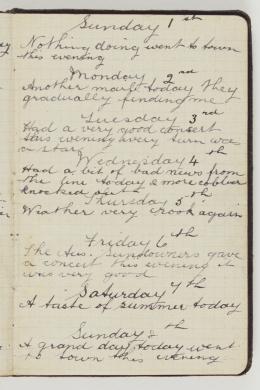 Sunday 1st
Nothing doing went to town
this evening
Monday 2nd
Another mail today they
gradually finding me
Tuesday 3rd
Had a very good concert
this evening every turn was
a star
Wednesday 4th
Had a bit of bad news from
the line today 2 more cobbers
knocked out
Thursday 5th
Weather very crook again
Friday 6th
The Aus. Sundowners gave
a concert this evening it
was very good
Saturday 7th
A taste of summer today
Sunday 8th
A grand day today went
to town this evening